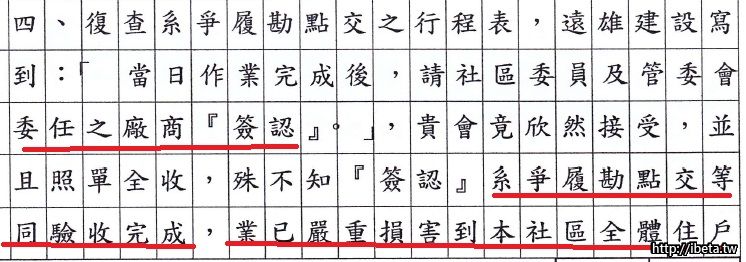 四、復查系爭履勘點交之行程表，遠雄建設寫
到：「　當日作業完成後，請社區委員及管委會
委任之廠商『簽認』。」，貴會竟欣然接受，並
且照單全收，殊不知『簽認』系爭履勘點交等
同驗收完成，業已嚴重損害到本社區全體住戶
http://ibeta.tw